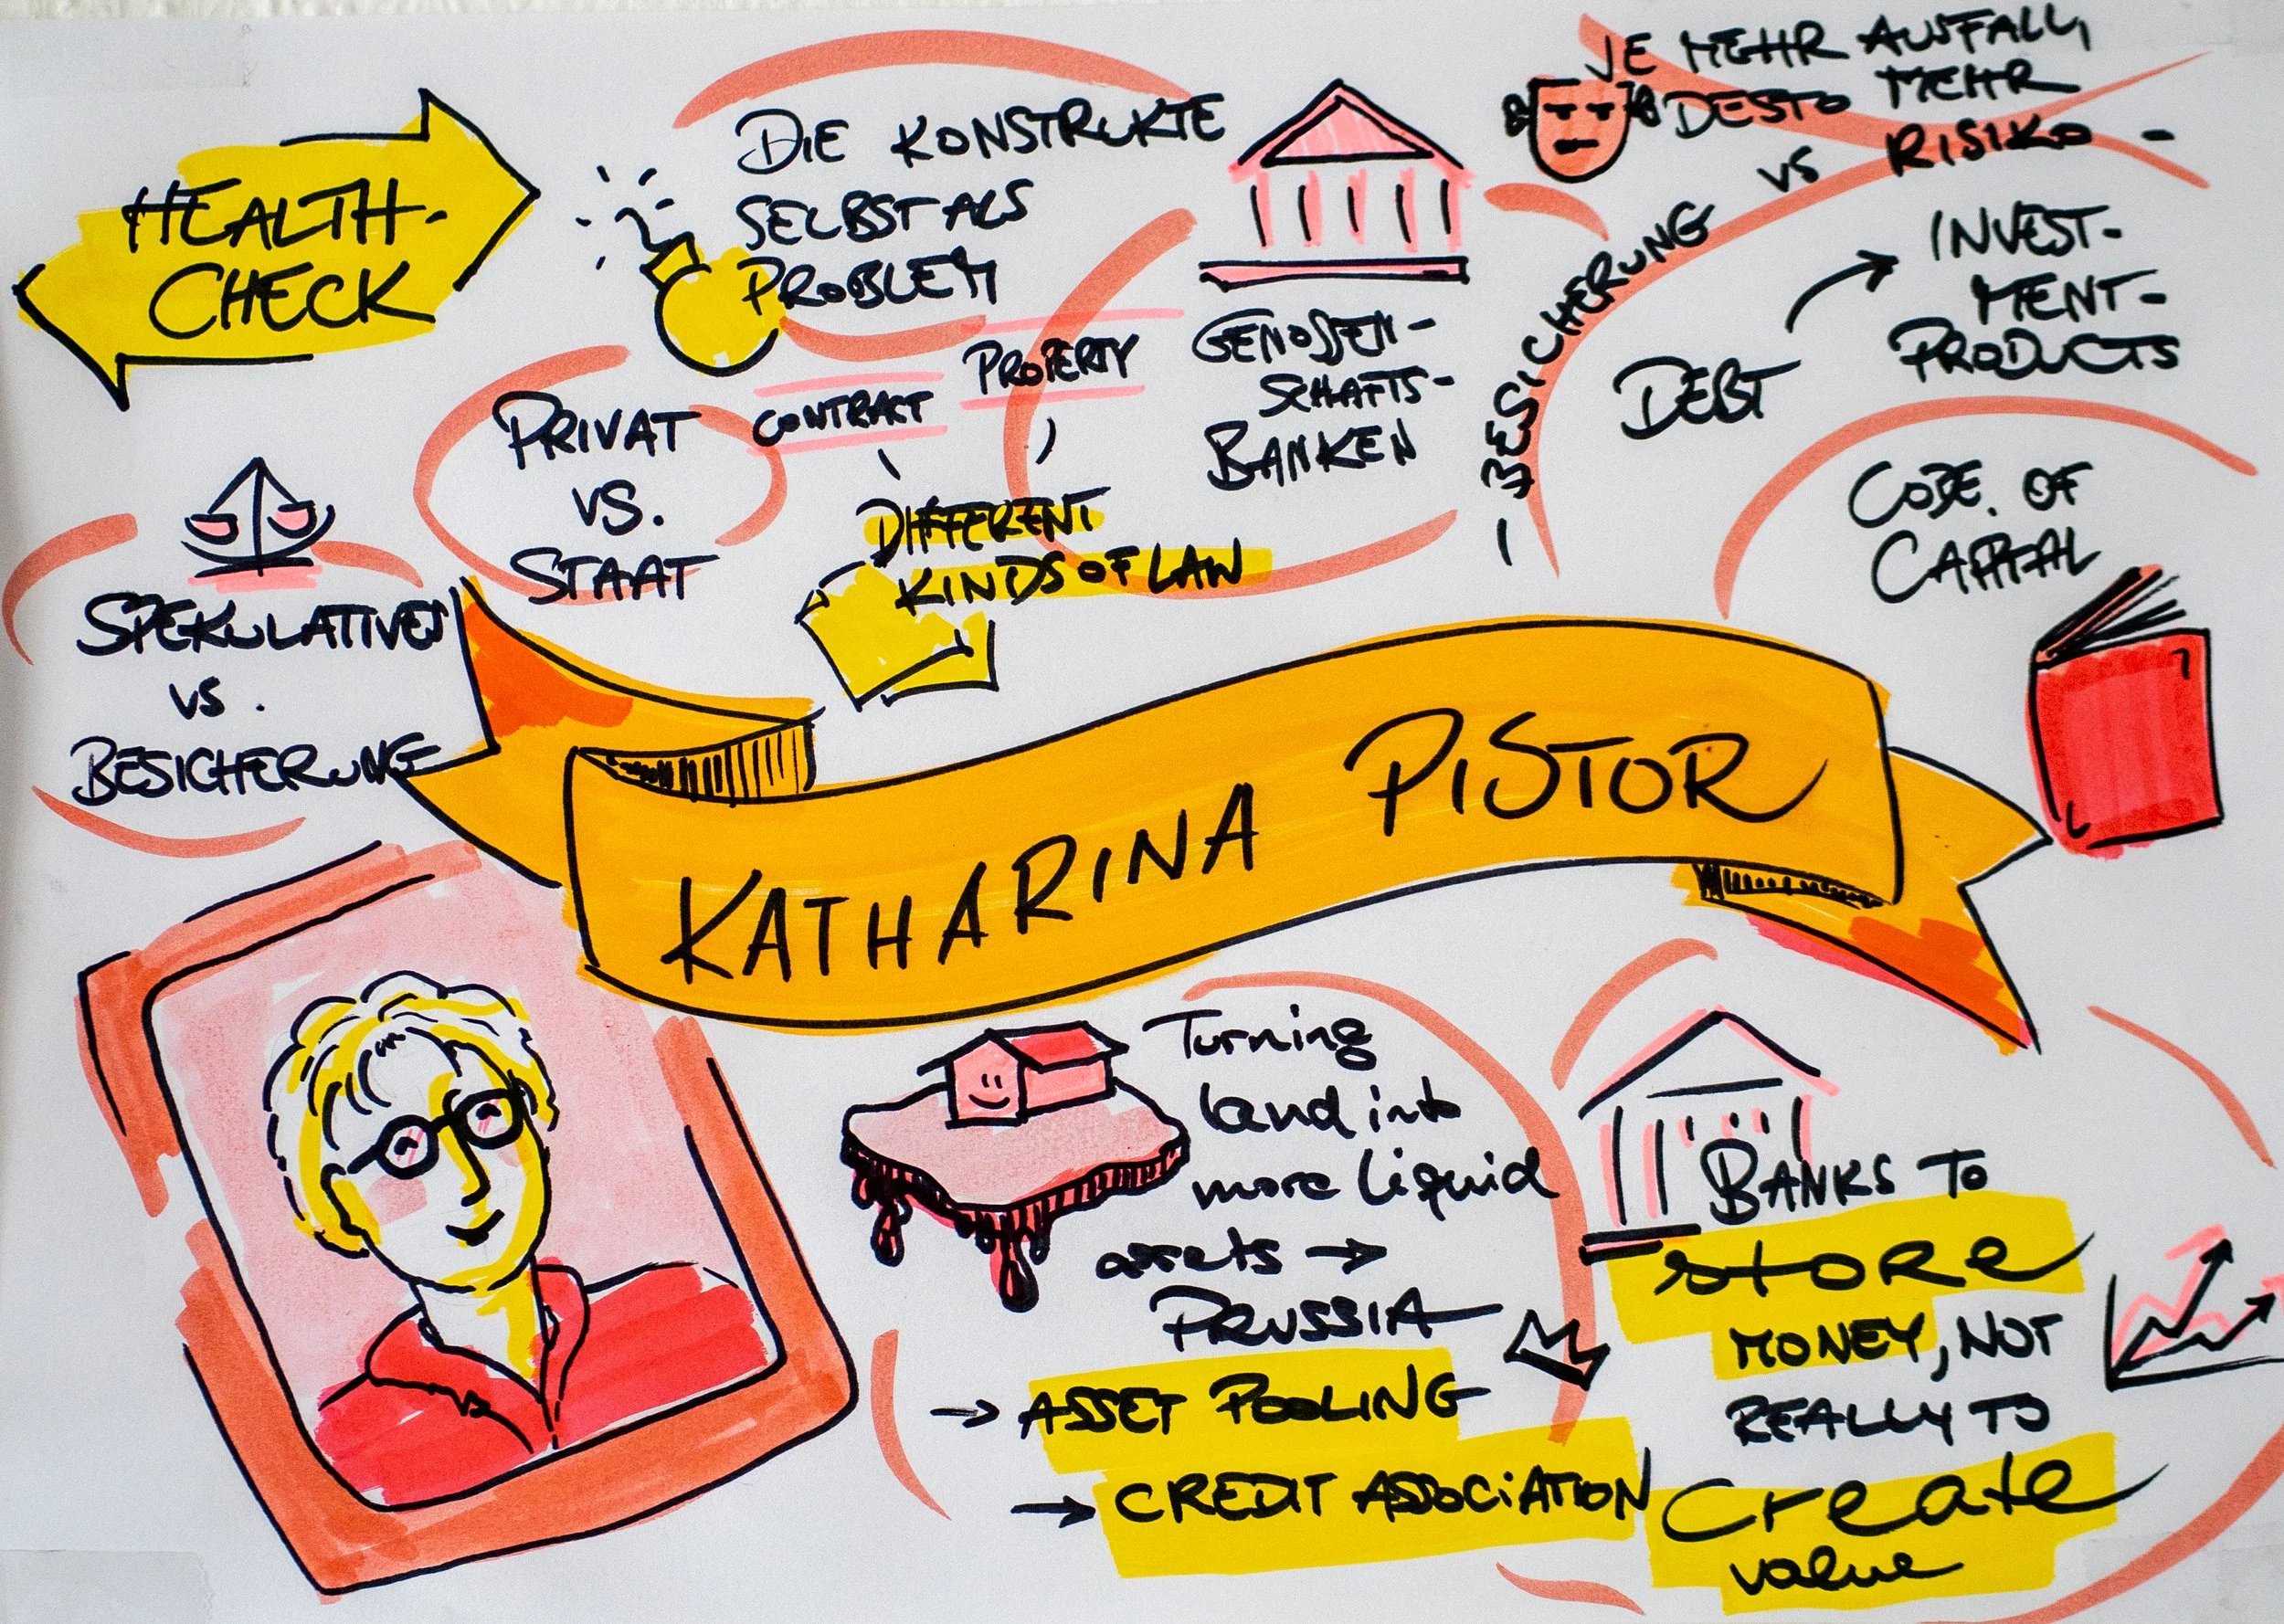 HEALTH-
CHECK
DIE KONSTRUKTE
SELBST ALS
PROBLEM
JE MEHR AUSFALL,
DESTO MEHR
VS RISIKO -
- BESICHERUNG
GENOSSEN-
SCHAFTS-
BANKEN
DEBT
INVEST-
MENT-
PRODUCTS
PRIVAT
VS.
STAAT
CONTRACT
PROPERTY
DIFFERENT
KINDS OF LAW
CODE OF
CAPITAL
SPEKULATIVES
VS.
BESICHERUNG
KATHARINA PISTOR
Turning
land into
more liquid
assets →
PRUSSIA
→ ASSET POOLING
→ CREDIT ASSOCIATION
BANKS TO
store
MONEY, NOT
REALLY TO
Create
value